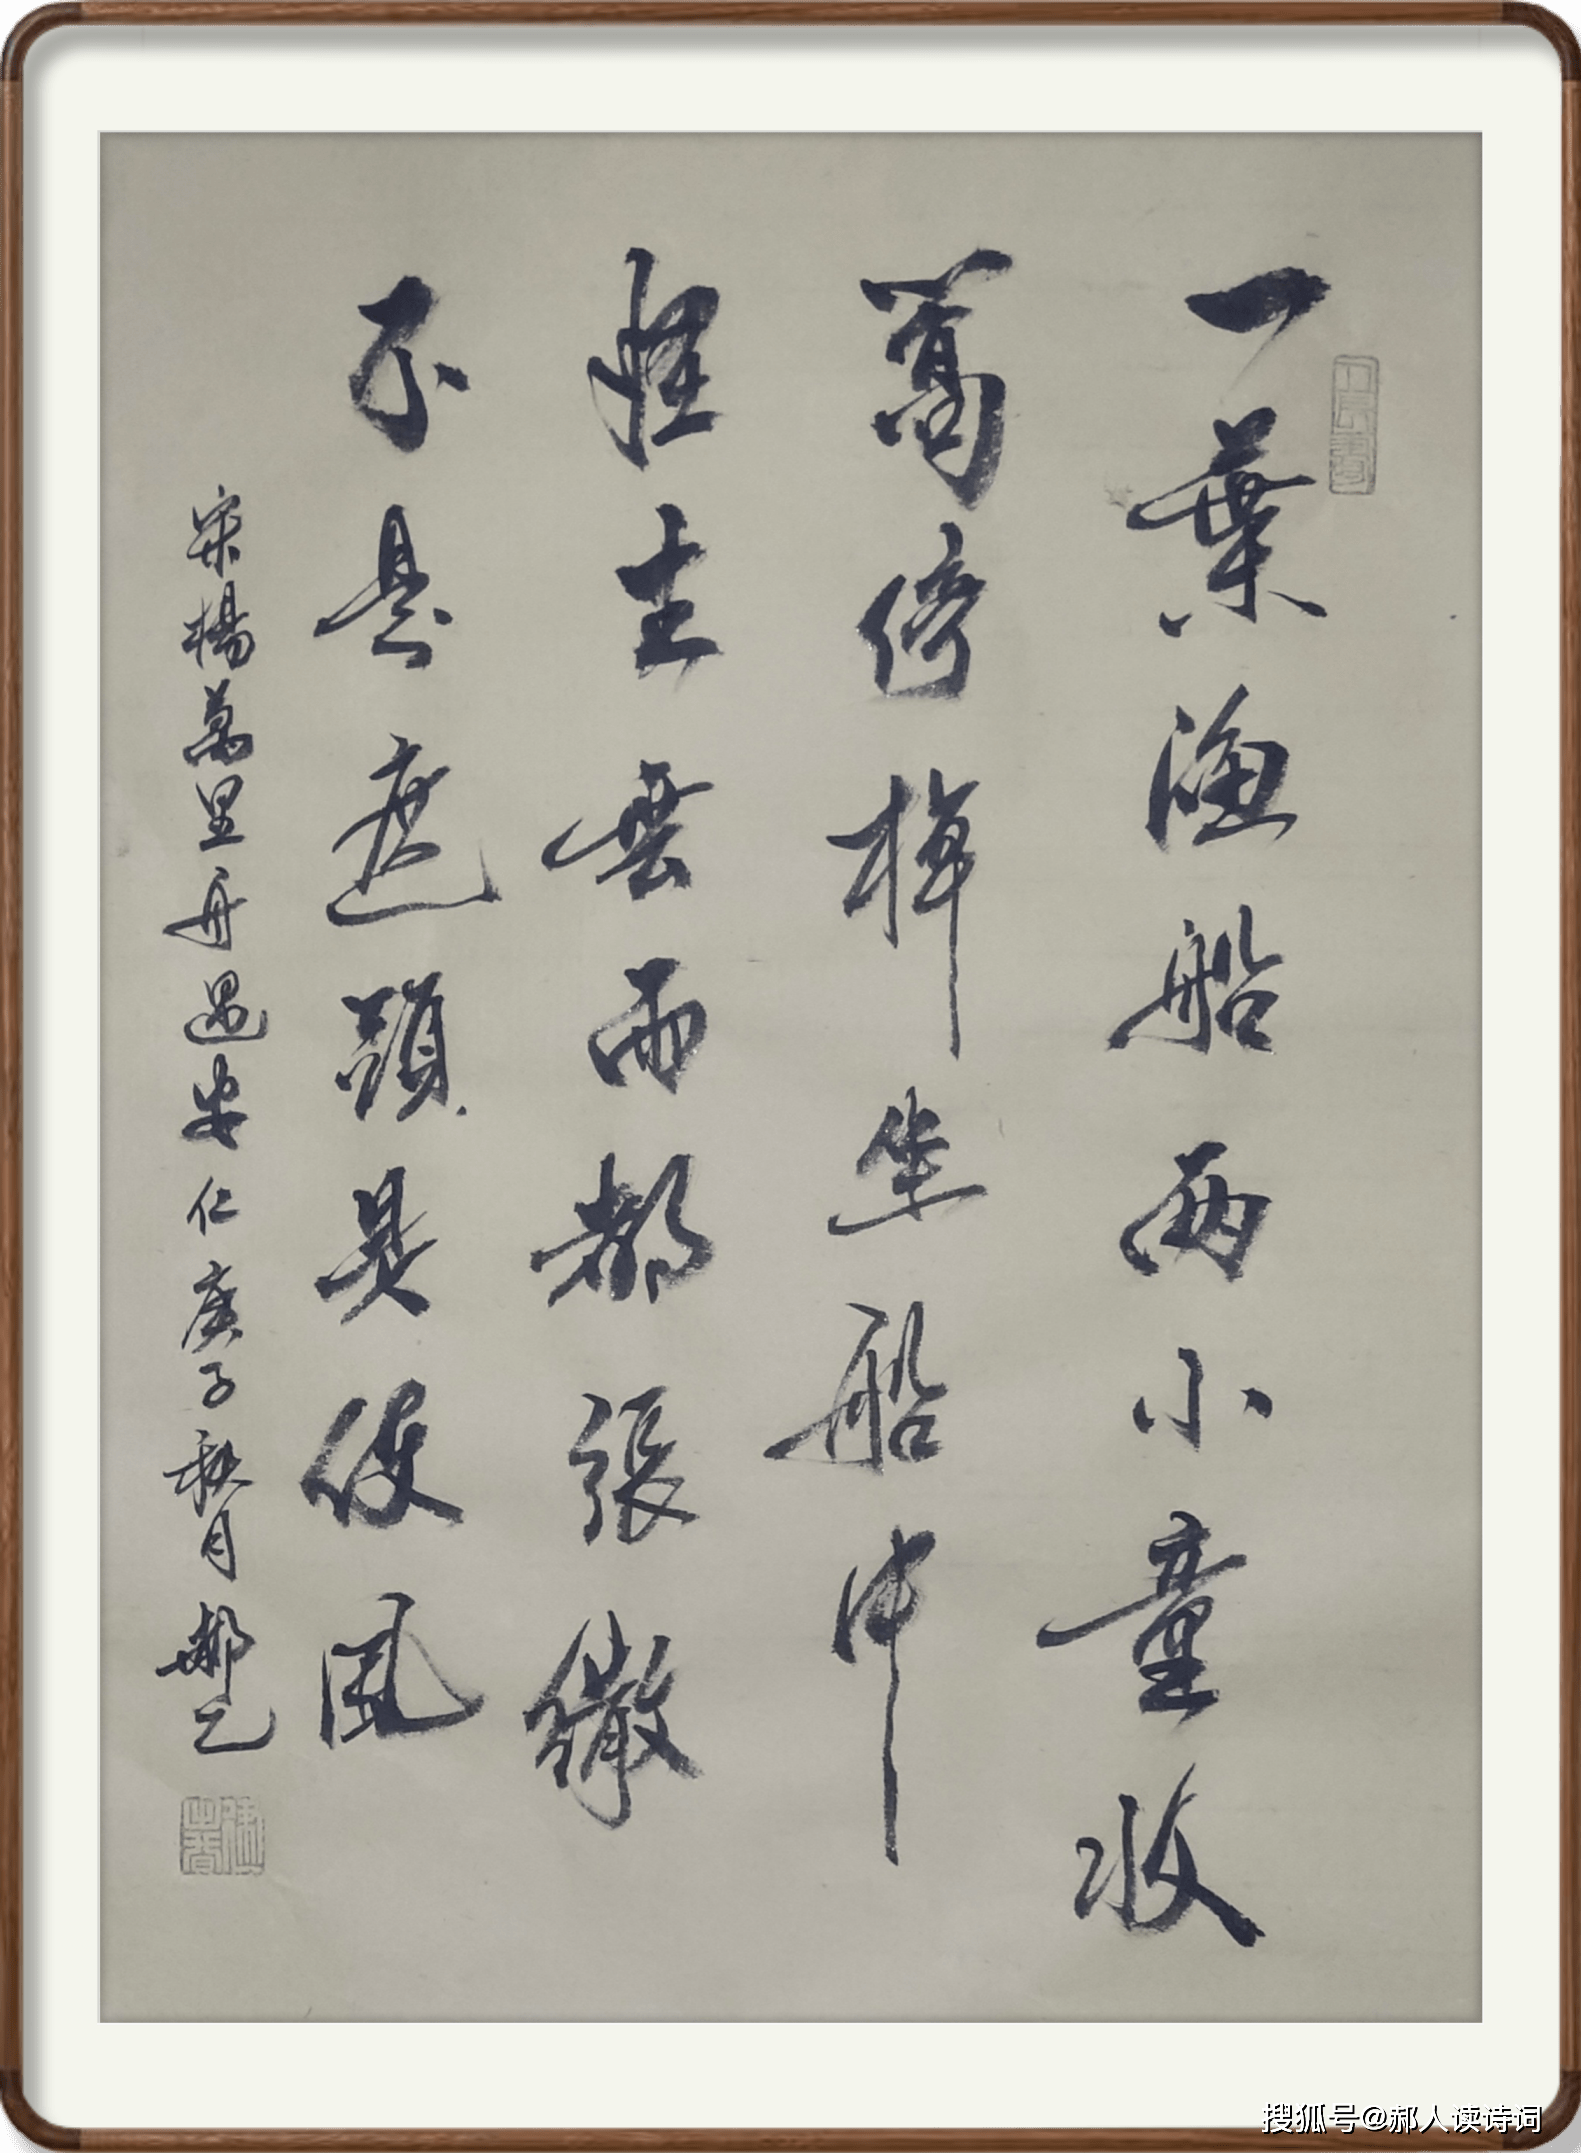 一葉漁船兩小童收
篙停棹坐船中
怪生無雨都張繖
不是遮頭是使風
宋楊萬里舟過安仁庚子秋月郝
搜狐号@郝人读诗词